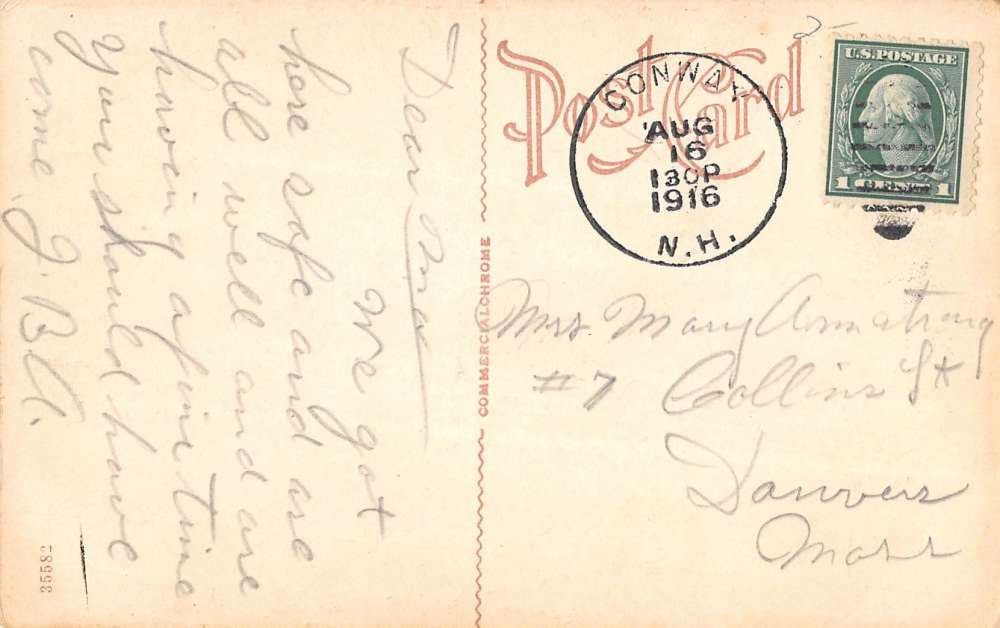 Dear Ma
We got
here safe and are
all well and are
having a fine time
you should have
come. J. B. A.
Post Card
COMMERCIALCHROME
35582
2
CONWAY
AUG
16
130P
1916
N.H.
U.S. POSTAGE
1 1
Mrs Mary Armstrong
#7 Collins St
Danvers
Mass